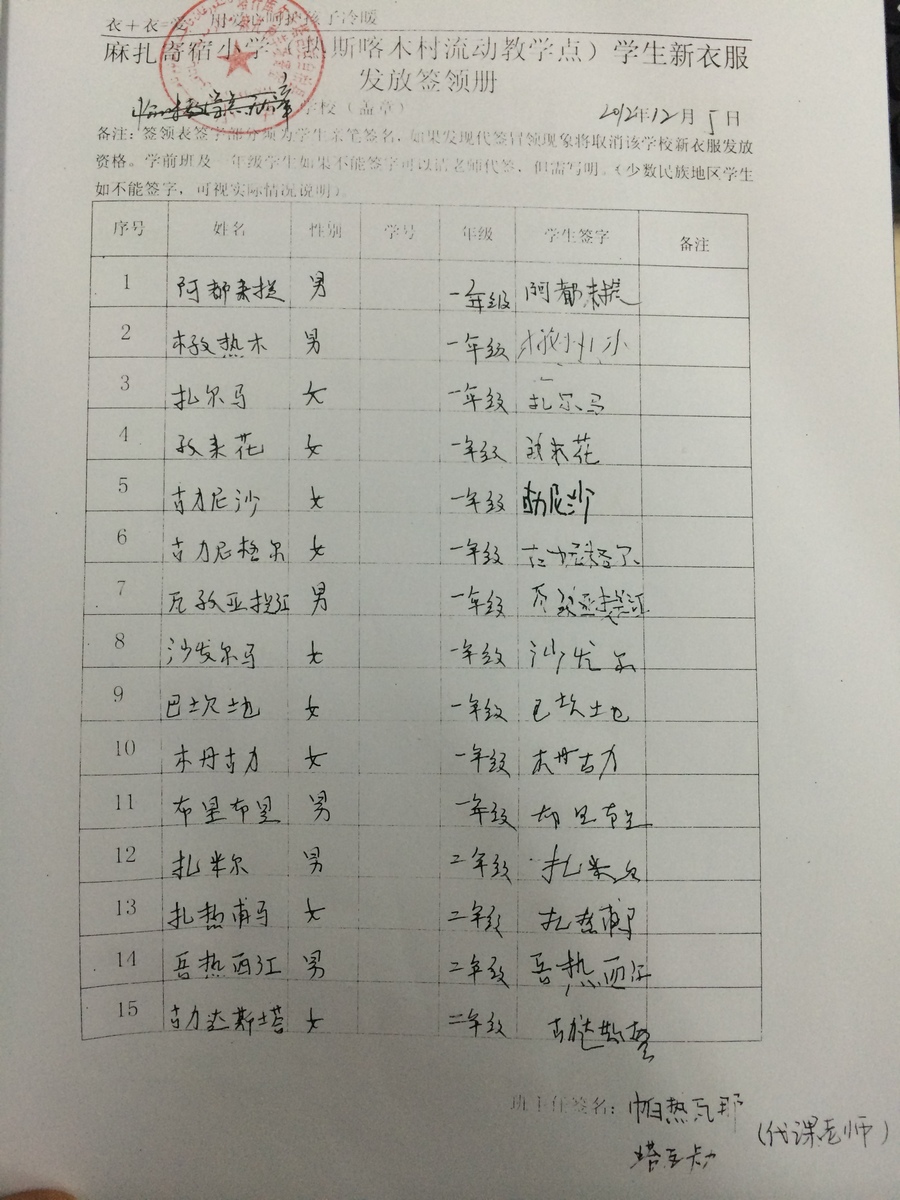 衣+衣=爱 用爱心呵护孩子冷暖
麻扎寄宿小学（热斯喀木村流动教学点）学生新衣服
发放签领册
学校（盖章） 2012年12月5日
备注：签领表签字部分须为学生亲笔签名，如果发现代签冒领现象将取消该学校新衣服发放
资格。学前班及一年级学生如果不能签字可以请老师代签，但需写明。（少数民族地区学生
如不能签字，可视实际情况说明）。
序号 姓名 性别 学号 年级 学生签字 备注
1 阿都来提 男 一年级 阿都来提
2 热木 男 一年级
3 扎尔马 女 一年级 扎尔马
4 孜来花 女 一年级 孜来花
5 古力尼沙 女 一年级 古力尼沙
6 古力尼格尔 女 一年级 古力尼格尔
7 瓦孜亚提江 男 一年级 瓦孜亚提江
8 沙发尔马 女 一年级 沙发尔
9 巴坎地 女 一年级
10 木丹古力 女 一年级 木丹古力
11 布里布里 男 一年级 布里布里
12 扎米尔 男 二年级 扎米尔
13 扎热甫马 女 二年级 扎热甫马
14 吾热西江 男 二年级 吾热西江
15 古力达斯塔 女 二年级
班主任签名：帕热瓦那
（代课老师）